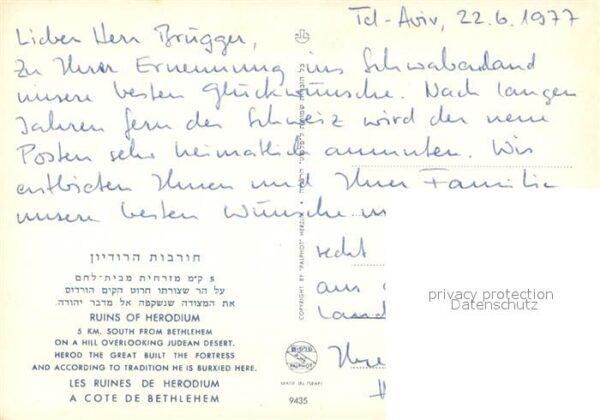 Tel-Aviv, 22.6.1977
Lieber Herr Brügger,
Zu Ihrer Ernennung ins Schwabenland
unsere besten Glückwünsche. Nach langen
Jahren fern der Schweiz wird der neue
Posten sehr heimatlich anmuten. Wir
entbieten Ihnen und Ihrer Familie
unsere besten Wünsche
recht
aus
Land
Ihre
privacy protection
Datenschutz
חורבות הרודיון
5 ק"מ מזרחית מבית-לחם
על הר שצורתו חרוט הקים הורדוס
את המצודה שנשקפה אל מדבר יהודה.
RUINS OF HERODIUM
5 KM. SOUTH FROM BETHLEHEM
ON A HILL OVERLOOKING JUDEAN DESERT.
HEROD THE GREAT BUILT THE FORTRESS
AND ACCORDING TO TRADITION HE IS BURXIED HERE.
LES RUINES DE HERODIUM
A COTE DE BETHLEHEM
COPYRIGHT BY "PALPHOT" HERZLIA
PALPHOT
MADE IN ISRAEL
9435